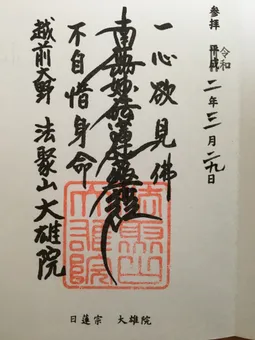 参拝 令和二年三月二九日
一心欲見佛
南無妙法蓮華經
不自惜身命
越前大野 法聚山 大雄院
日蓮宗 大雄院